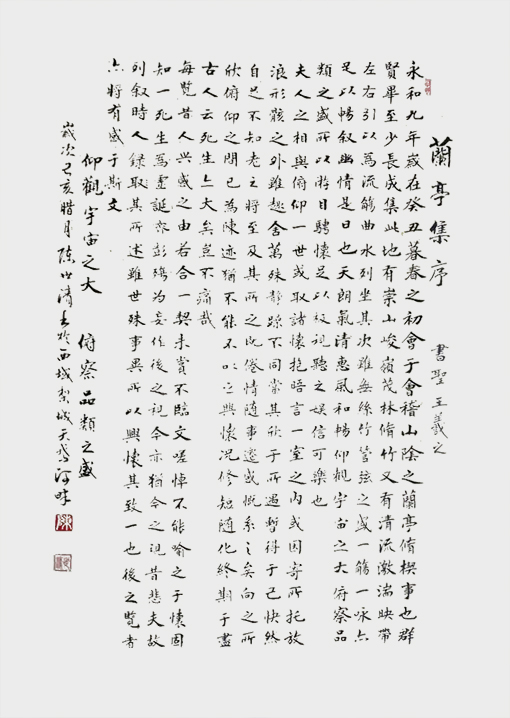 蘭亭集序 書聖王羲之
永和九年歲在癸丑暮春之初會于會稽山陰之蘭亭脩禊事也群
賢畢至少長咸集此地有崇山峻嶺茂林脩竹又有清流激湍映帶
左右引以為流觴曲水列坐其次雖無絲竹管弦之盛一觴一咏亦
足以暢敘幽情是日也天朗氣清惠風和暢仰觀宇宙之大俯察品
類之盛所以遊目騁懷足以極視聽之娛信可樂也
夫人之相與俯仰一世或取諸懷抱晤言一室之內或因寄所托放
浪形骸之外雖趣舍萬殊靜躁不同當其欣于所遇暫得于己快然
自足不知老之將至及其所之既倦情隨事遷感慨系之矣向之所
欣俯仰之間已為陳迹猶不能不以之興懷況修短隨化終期于盡
古人云死生亦大矣豈不痛哉
每覽昔人興感之由若合一契未嘗不臨文嗟悼不能喻之于懷固
知一死生為虛誕齊彭殤為妄作後之視今亦猶今之視昔悲夫故
列敘時人錄取其所述雖世殊事異所以興懷其致一也後之覽者
亦將有感于斯文
仰觀宇宙之大 俯察品類之盛
歲次己亥臘月陳清書於西域梨城天鵝河畔
陳